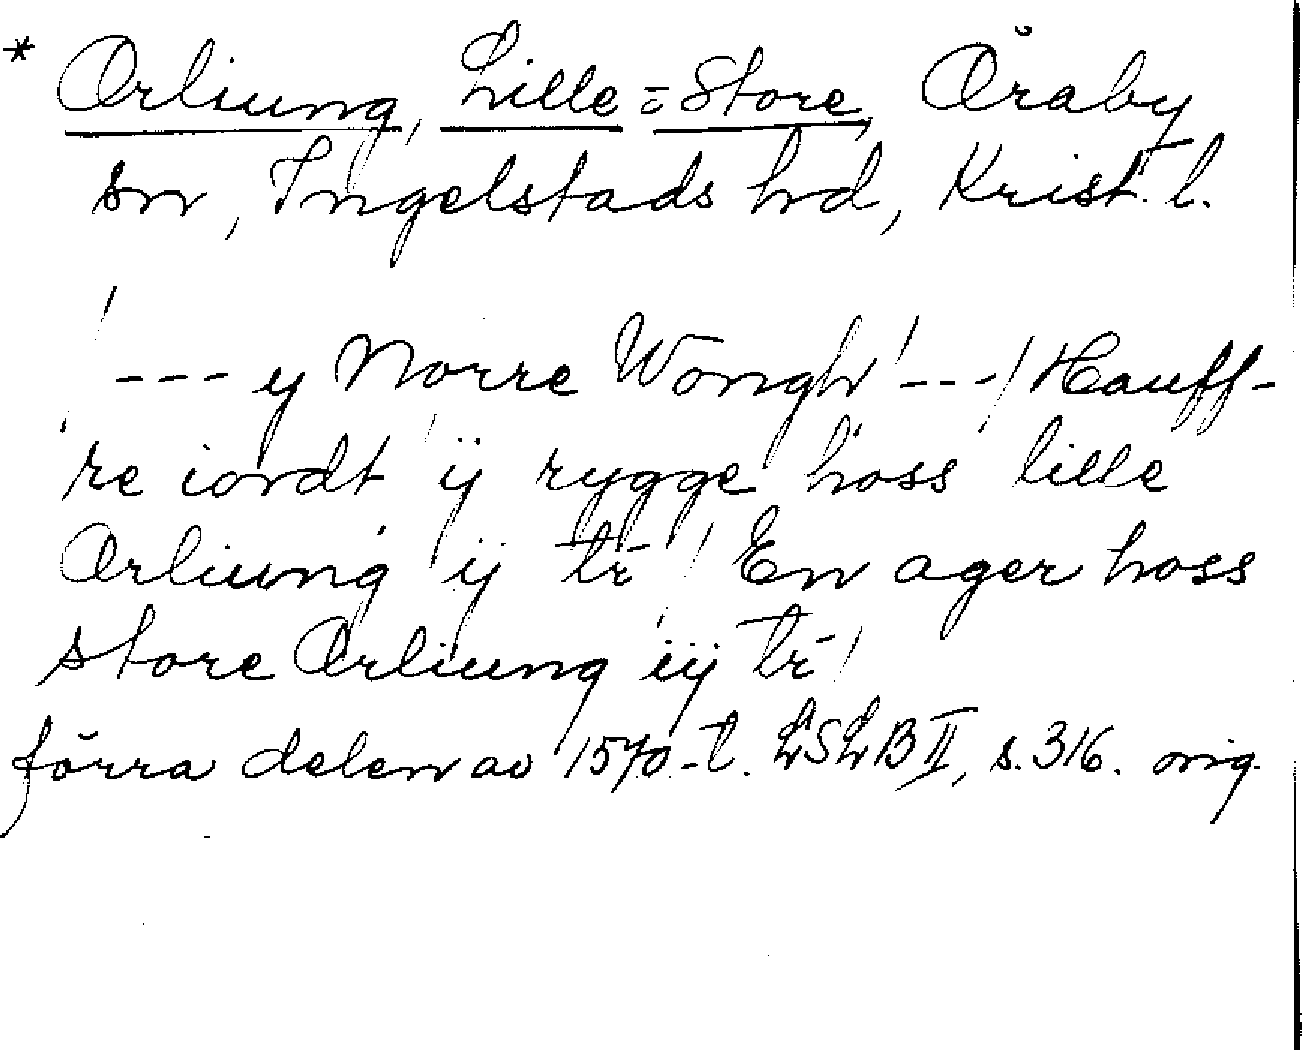 * Ørliung, Lille = Store, Öraby
sn, Ingelstads hd, Krist. l.
/ --- y Norre Wongh / --- / Hauff-
re iordt ij rygge hoss lille
Ørliung ij tr̄ / En ager hoss
store Ørliung iij tr̄ /
förra delen av 1570-t. LSLB II, s. 316. orig.